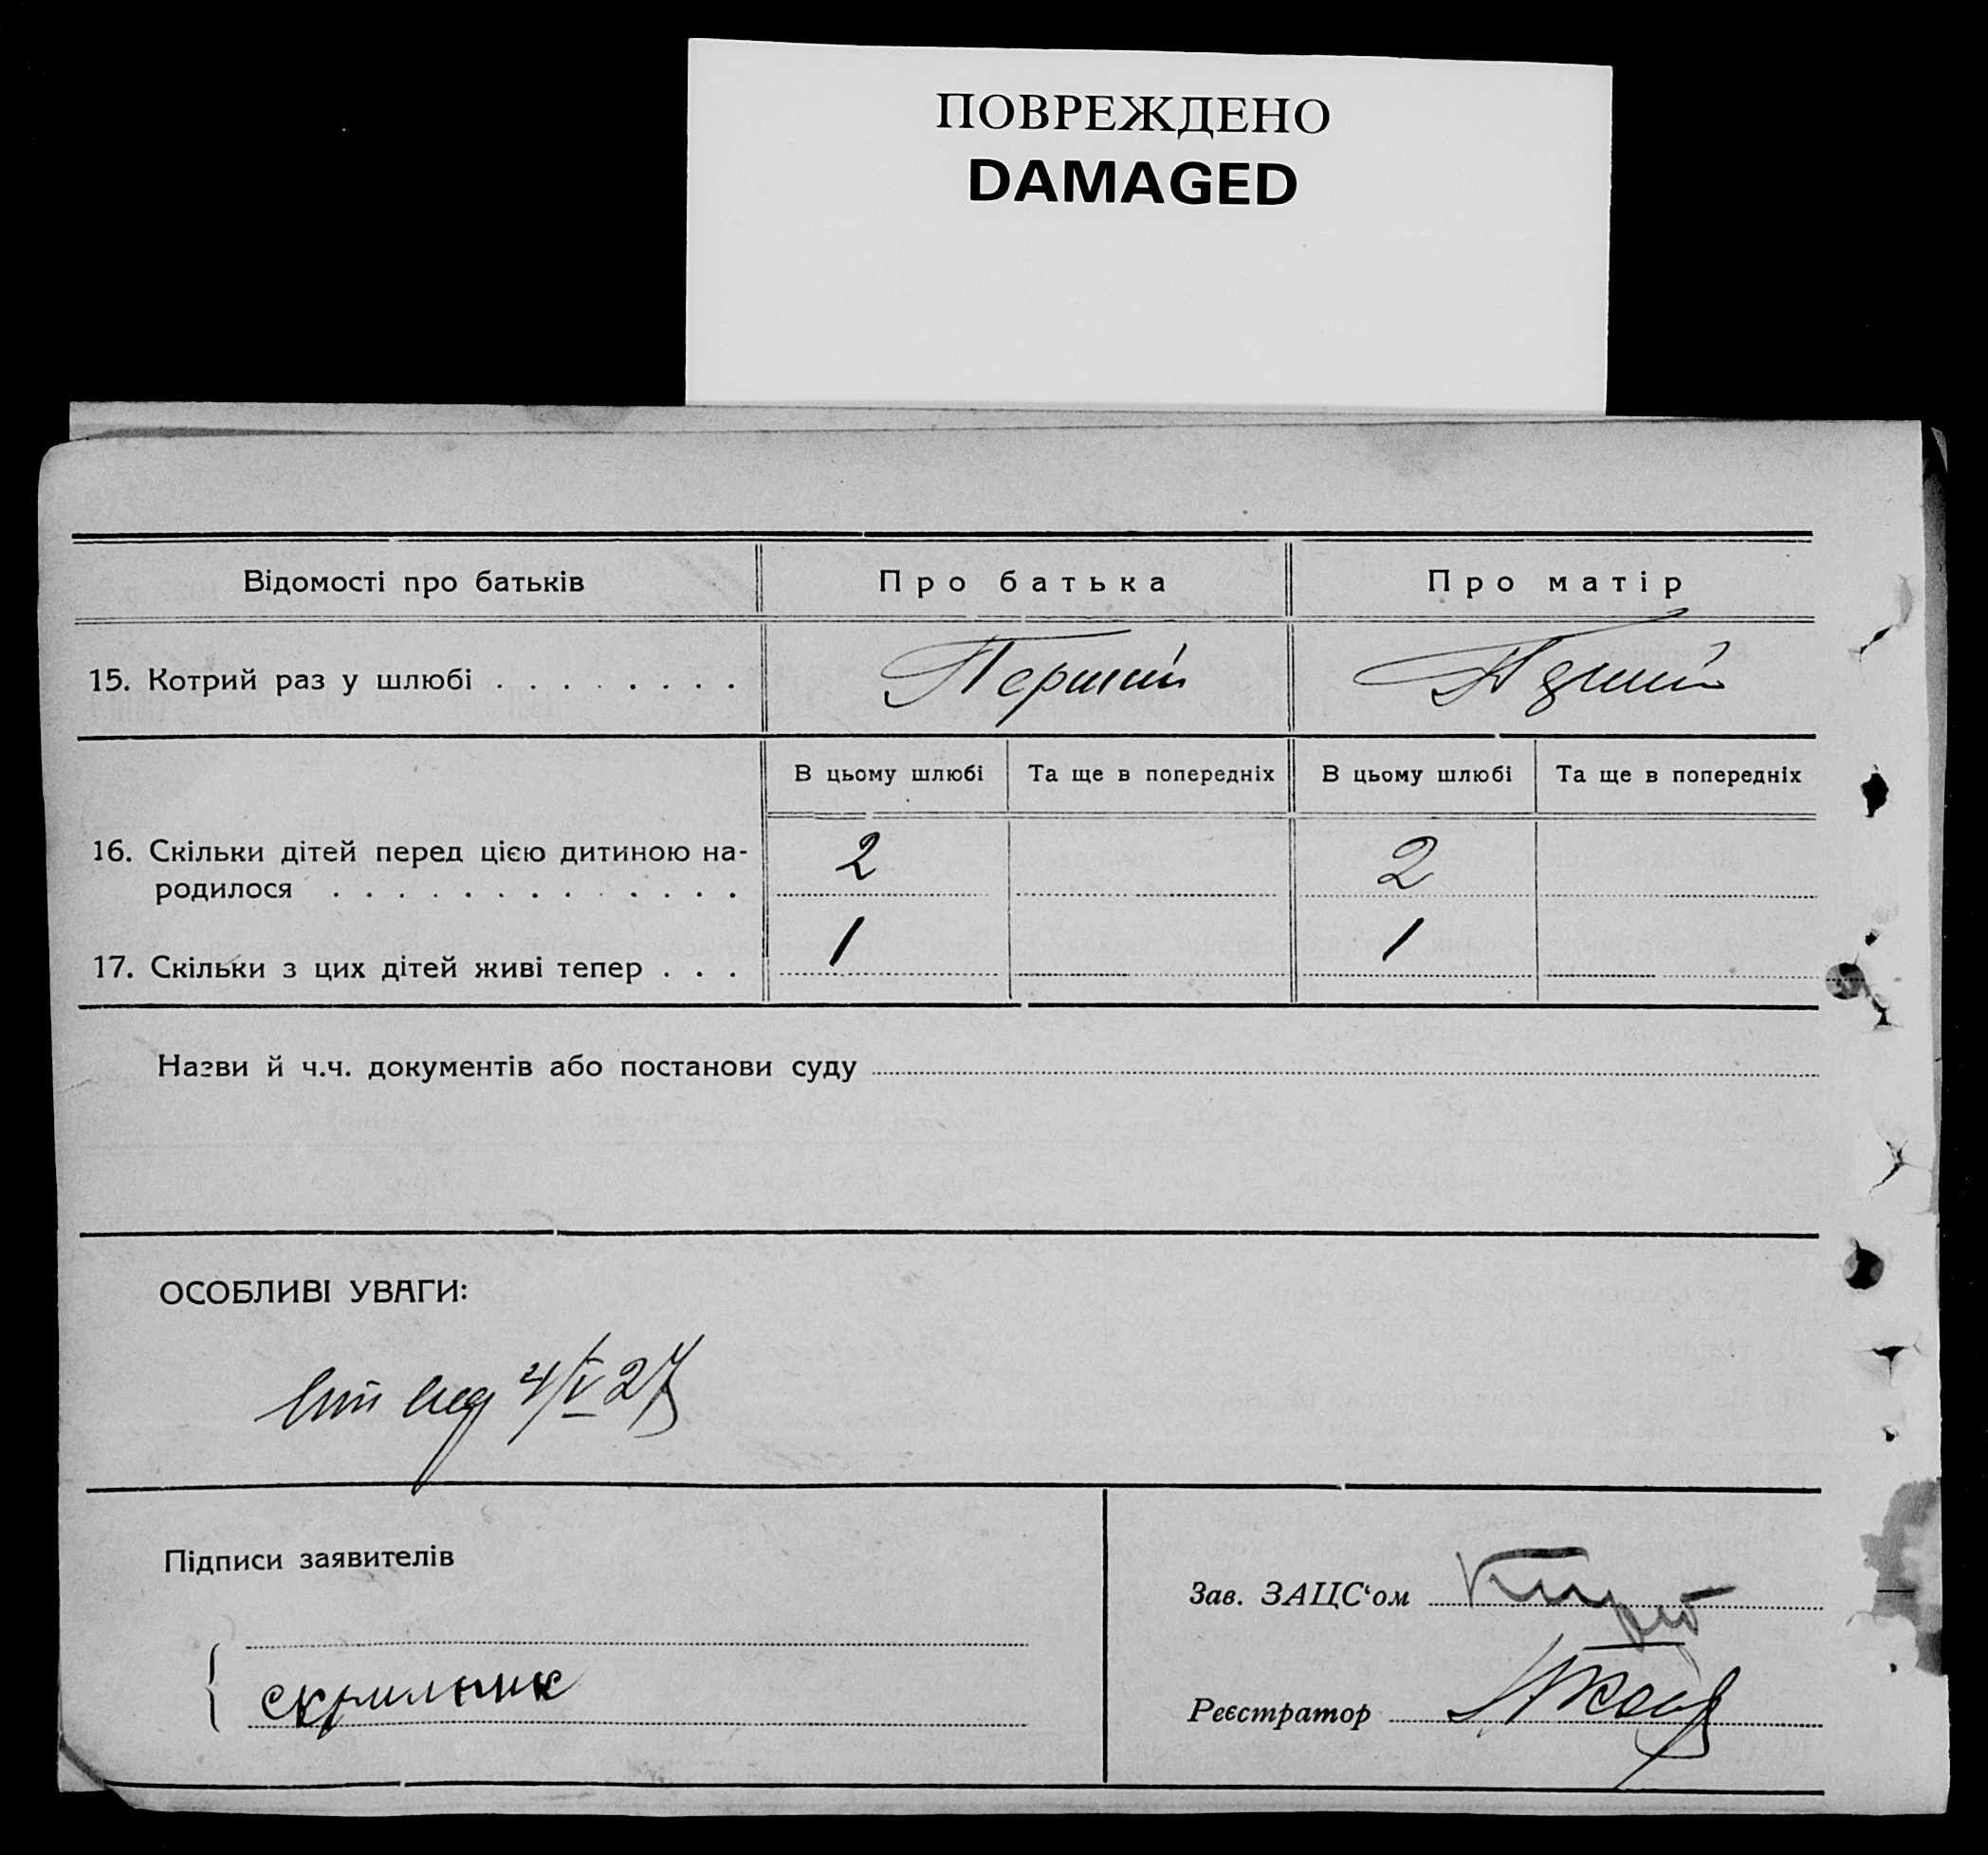 ПОВРЕЖДЕНО
DAMAGED
Відомості про батьків
Про батька
Про матір
15. Котрий раз у шлюбі . . . . . . . .
Перший
В цьому шлюбі
Та ще в попередніх
В цьому шлюбі
Та ще в попередніх
16. Скільки дітей перед цією дитиною на-
родилося . . . . . . . . . . . . .
2
2
17. Скільки з цих дітей живі тепер . . .
1
1
Назви й ч.ч. документів або постанови суду
ОСОБЛИВІ УВАГИ:
4/V 27
Підписи заявителів
скрильник
Зав. ЗАЦС‘ом
Реєстратор